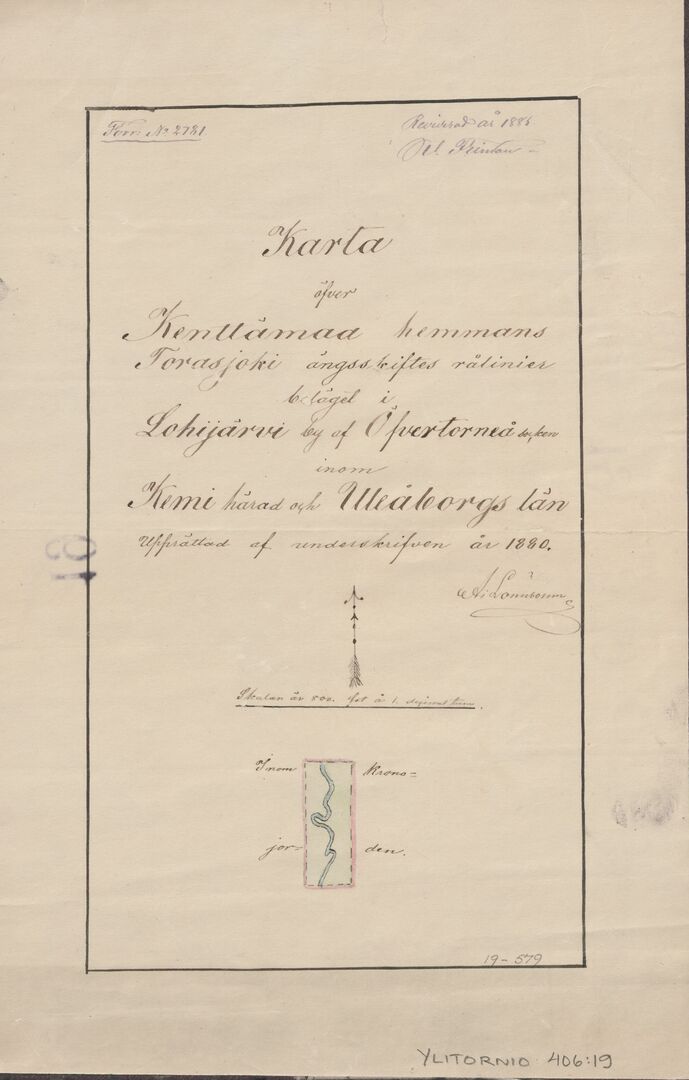 Forn No 2781.
Reviderad år 1885
Karta
öfver
Kenttämaa hemmans
Torasjoki ängsskiftes rålinier
belägel i
Lohijärvi by af Öfvertorneå socken
inom
Kemi härad och Uleåborgs län
Upprättad af underskrifven år 1880.
Skalan är 800. fot à 1. decimal tum.
Inom Krono=
jor= den.
19
19-579
YLITORNIO 406:19